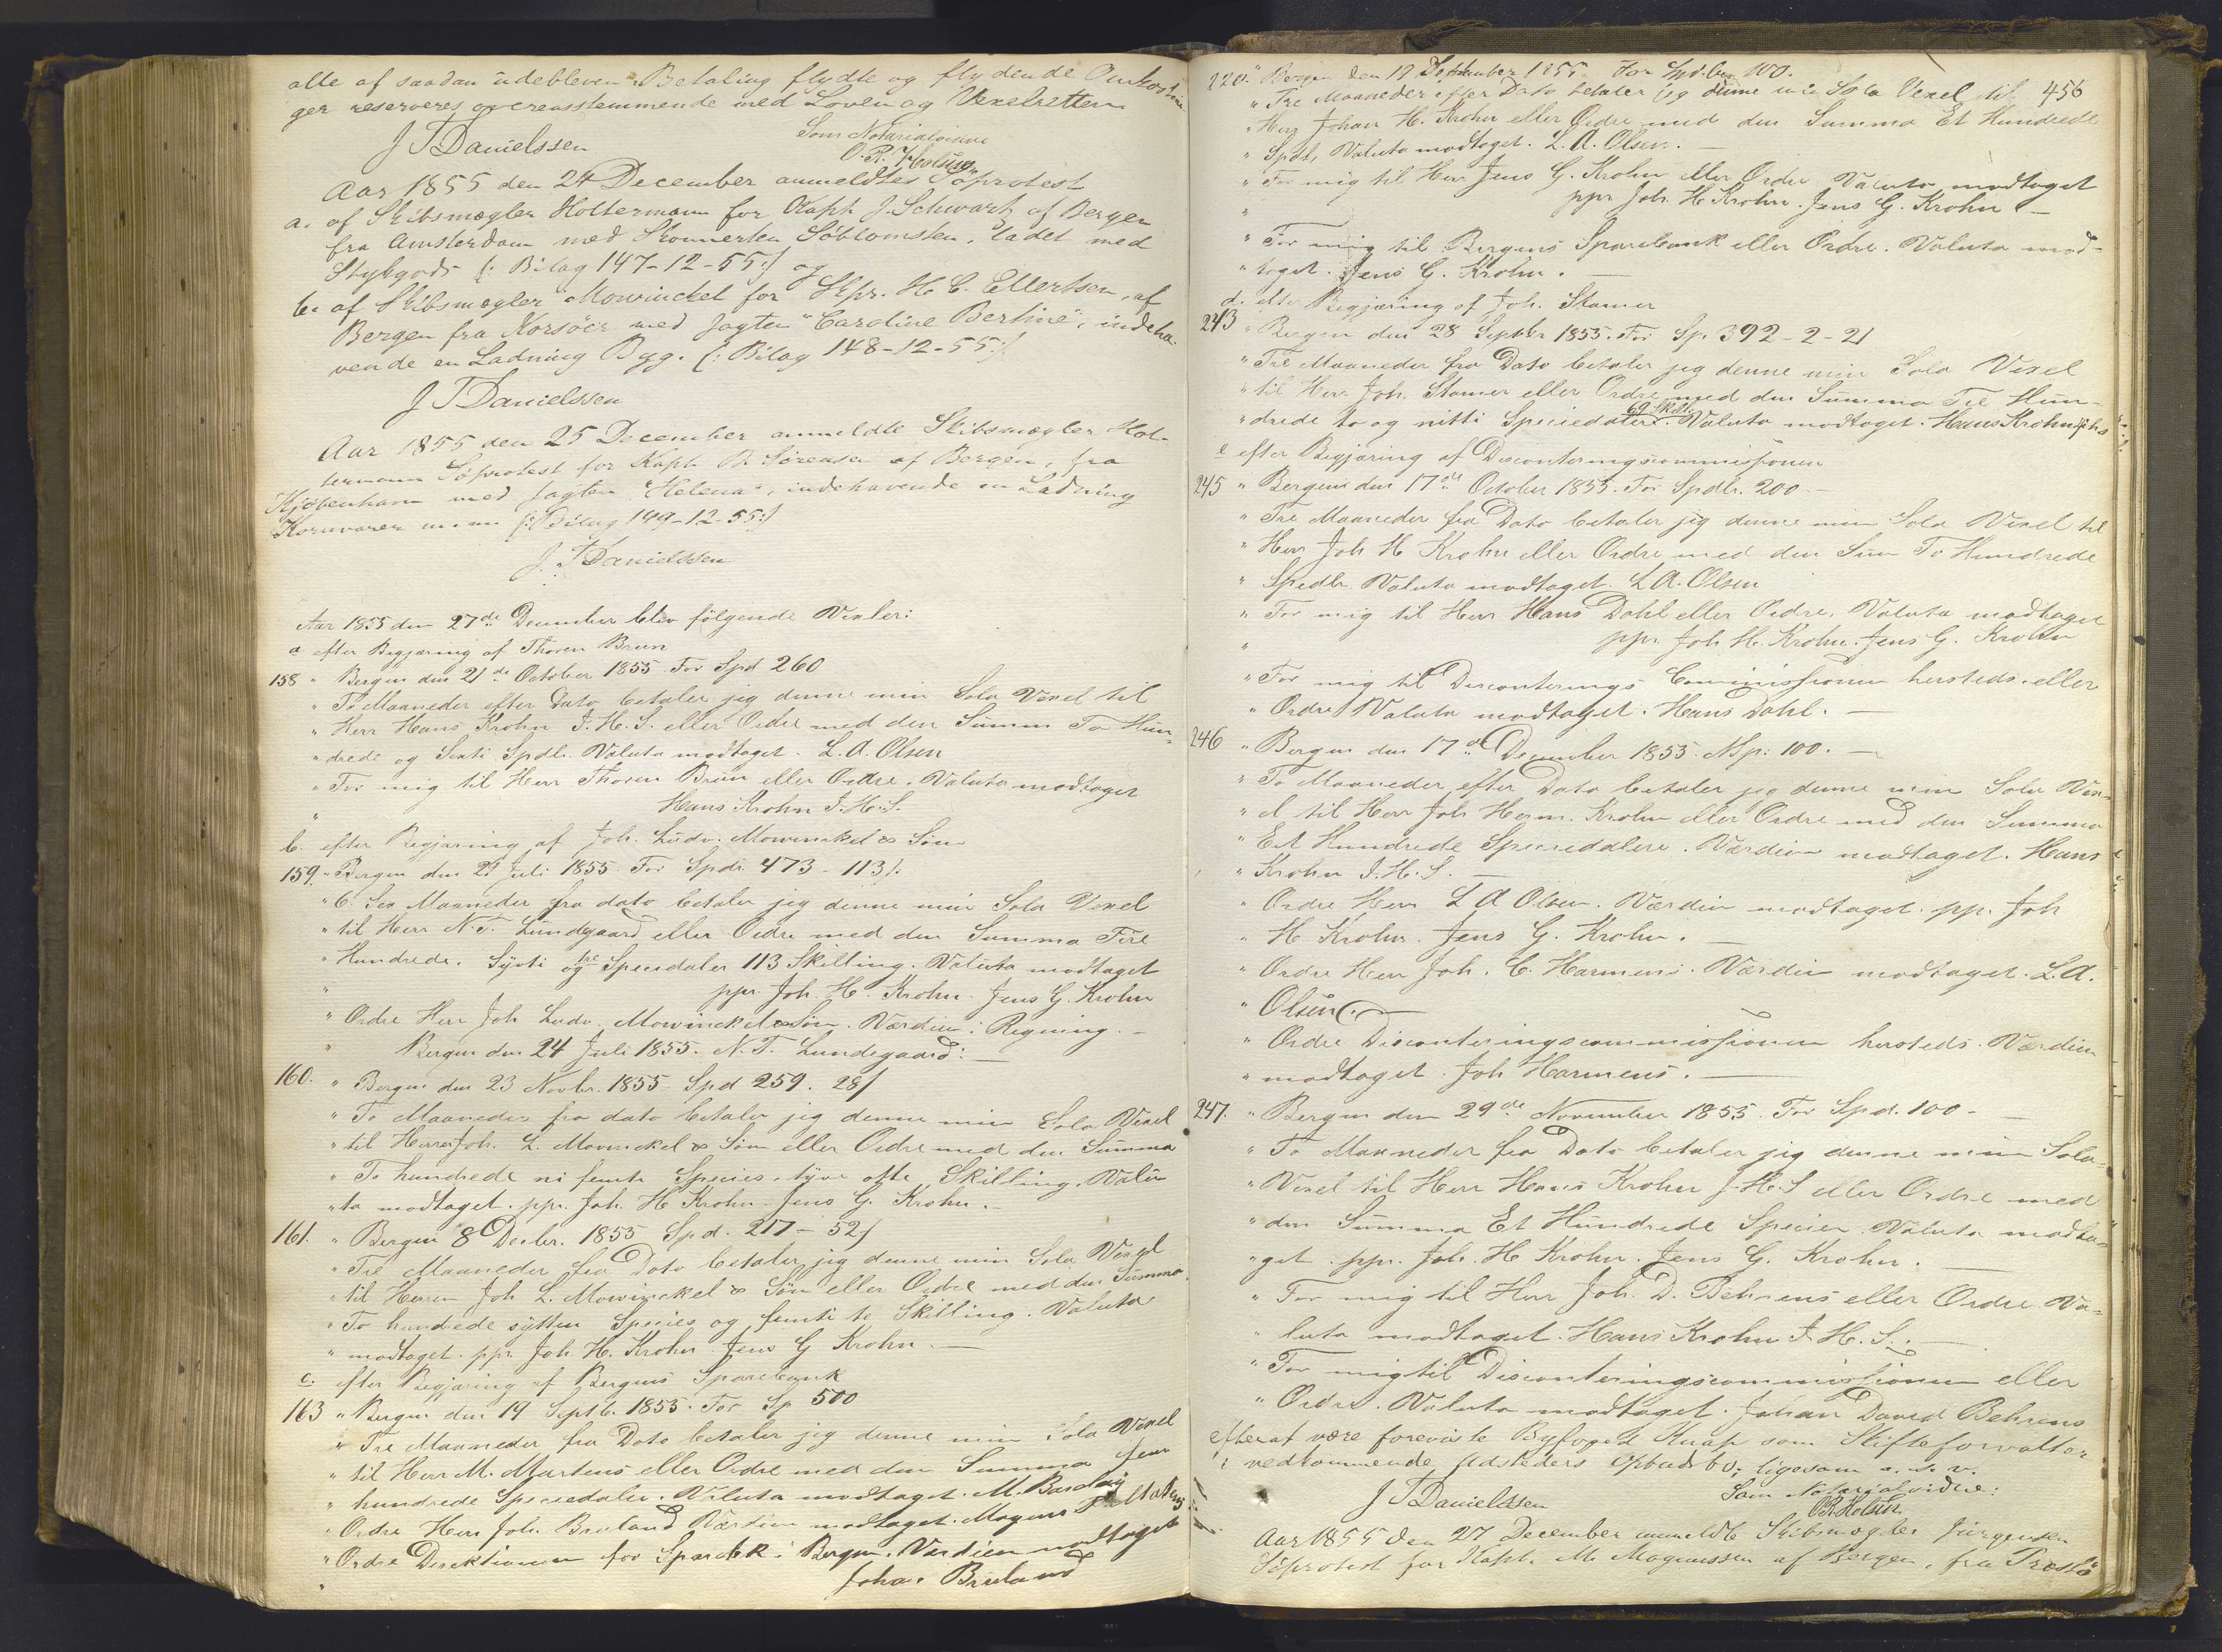 alle af saadan udebleven Betaling flydte og flydende Omkostnin-
ger reserveres overensstemmende med Loven og Vexelretten
J T Danielssen
Som Notarialvidne
O. R. Holsun
Aar 1855 den 24 December anmeldtes Söprotest
a. af Skibsmægler Holtermann for Kapt. J. Schwartz af Bergen
fra Amsterdam med Skonnerten Söblomsten, ladet med
Stykgods (: Bilag 147-12-55:) og
b. af Skibsmægler Mowinckel for Skpr. H. C. Ellertsen, af
Bergen fra Korsöer med Jagten "Caroline Bertine", indeha-
vende en Ladning Byg. (: Bilag 148-12-55:)
J T Danielssen
Aar 1855 den 25 December anmeldte Skibsmægler Hol-
termann Söprotest for Kapt. B. Sörensen af Bergen, fra
Kjöbenhavn med Jagten "Helena", indehavende en Ladning
Kornvarer m. m (: Bilag 149-12-55:)
J. T Danielssen
Aar 1855 den 27de December blev fölgende Vexler:
a efter Begjæring af Thoren Brun
158 " Bergen den 21de October 1855 For Spd 260
" To Maaneder efter Dato betaler jeg denne min Sola Vexel til
" Herr Hans Krohn J. H. S. eller Ordre med den Summa To Hun-
" drede og Sexti Spdlr. Valuta modtaget. L. A. Olsen
" For mig til Herr Thoren Brun eller Ordre. Valuta modtaget
" Hans Krohn J. H. S.
b. efter Begjæring af Joh. Ludv. Mowinckel & Sön
159. " Bergen den 21 Juli 1855 For Spdr. 473 - 113 /:
" 6. Sex Maaneder fra dato betaler jeg denne min Sola Vexel
" til Herr N. T. Lundgaard eller Ordre med den Summa Fire
" Hundrede, Sÿtti og tre Speciedaler 113 Skilling. Valuta modtaget
" ppr. Joh. H. Krohn. Jens G. Krohn
" Ordre Herr Joh Ludv. Mowinckel & Sön. Værdien i Regning. -
" Bergen den 24 Juli 1855. N. T. Lundegaard: —
160. " Bergen den 23 Novbr. 1855. Spd 259. 28 /
" To Maaneder fra dato betaler jeg denne min Sola Vexel
" til Herrer Joh. L. Mowinckel & Sön eller Ordre med den Summa
" To hundrede ni femti Species, tyve otte Skilling. Valu
" ta modtaget. ppr. Joh. H Krohn Jens G. Krohn. -
161. " Bergen 8 Decbr. 1855 Spd. 217 - 52 /
" Tre Maaneder fra Dato betaler jeg denne min Sola Vexel
" til Herren Joh L. Mowinckel & Sön eller Ordre med den Summa
" To hundrede sÿtten Species og femti to Skilling. Valuta
" modtaget. ppr. Joh. H. Krohn Jens G Krohn. —
c. efter Begjæring af Bergens Sparebank
163 " Bergen den 19 Septb. 1855. For Sp 500
" Tre Maaneder fra Dato betaler jeg denne min Sola Vexel
" til Herr M. Martens eller Ordre med den Summa Fem
" hundrede Speciedaler. Valuta modtaget. M.
" Ordre Herr Joh. Bruland Værdien modtaget. Magnus Martens
" Ordre Direktionen for Sparebk. i Bergen. Værdien modtaget
" Johan Bruland
456
220. " Bergen den 19 September 1855. For Spd. 100.
" Tre Maaneder efter Dato betaler jeg denne min Sola Vexel til
" Herr Johan H. Krohn eller Ordre med den Summa Et Hundrede
" Spdl, Valuta modtaget. L. A. Olsen. -
" For mig til Herr Jens G. Krohn eller Ordre Valuta modtaget
" ppr Joh. H. Krohn. Jens G. Krohn. —
" For mig til Bergens Sparebank eller Ordre. Valuta mod-
" taget. Jens G. Krohn. —
d. efter Begjæring af Joh. Stamer
243 " Bergen den 28 Septbr 1855. For Sp. 392 - 2 - 21
" Tre Maaneder fra Dato betaler jeg denne min Sola Vexel
" til Herr Joh. Stamer eller Ordre med den Summa Tre Hun-
" drede to og nitti Speciedaler 69 Sk. Valuta modtaget. Hans Krohn J H S
e efter Begjæring af Disconteringscommissionen
245 " Bergen den 17de October 1855. For Spdlr. 200 -
" Tre Maaneder fra Dato betaler jeg denne min Sola Vexel til
" Herr Joh H Krohn eller Ordre med den Sum To Hundrede
" Spedlr Valuta modtaget. L A. Olsen
" For mig til Herr Hans Dahl eller Ordre, Valuta modtaget
" ppr. Joh H. Krohn. Jens G. Krohn
" For mig til Disconterings Commissionen hersteds eller
" Ordre Valuta modtaget. Hans Dahl. —
246 " Bergen den 17de December 1855. Sp: 100. —
" To Maaneder efter Dato betaler jeg denne min Sola Vex-
" el til Herr Joh Herm. Krohn eller Ordre med den Summa
" Et Hundrede Speciedalere. Værdien modtaget. Hans
" Krohn J. H. S. —
" Ordre Herr L A Olsen. Værdien modtaget. pp. Joh
" H Krohn. Jens G. Krohn. —
" Ordre Herr Joh. C. Harmens. Værdien modtaget. L. A.
" Olsen. —
" Ordre Disconteringscommissionen hersteds. Værdien
" modtaget. Joh Harmens. —
247. " Bergen den 29de November 1855. For Spd. 100 - —
" To Maaneder fra Dato betaler jeg denne min Sola-
" Vexel til Herr Hans Krohn J. H. S eller Ordre med
" den Summa Et Hundrede Specier. Valuta modta-
" get. ppr. Joh. H Krohn. Jens G. Krohn. —
" For mig til Herr Joh. D. Behrens eller Ordre. Va-
" luta modtaget. Hans Krohn J. H. S. —
" For mig til Disconteringscommissionen eller
" Ordre. Valuta modtaget. Johan David Behrens
efterat være foreviste Byfoged Knap som Skifteforvalter
i vedkommende Udsteders Opbudsbo; ligesom u. s. v.
J T Danielssen
Som Notarialvidne:
O. R. Holsun
Aar 1855 den 27 December anmeldte Skibsmægler Jürgensen
Söprotest for Kapt. M. Magnussen af Bergen, fra